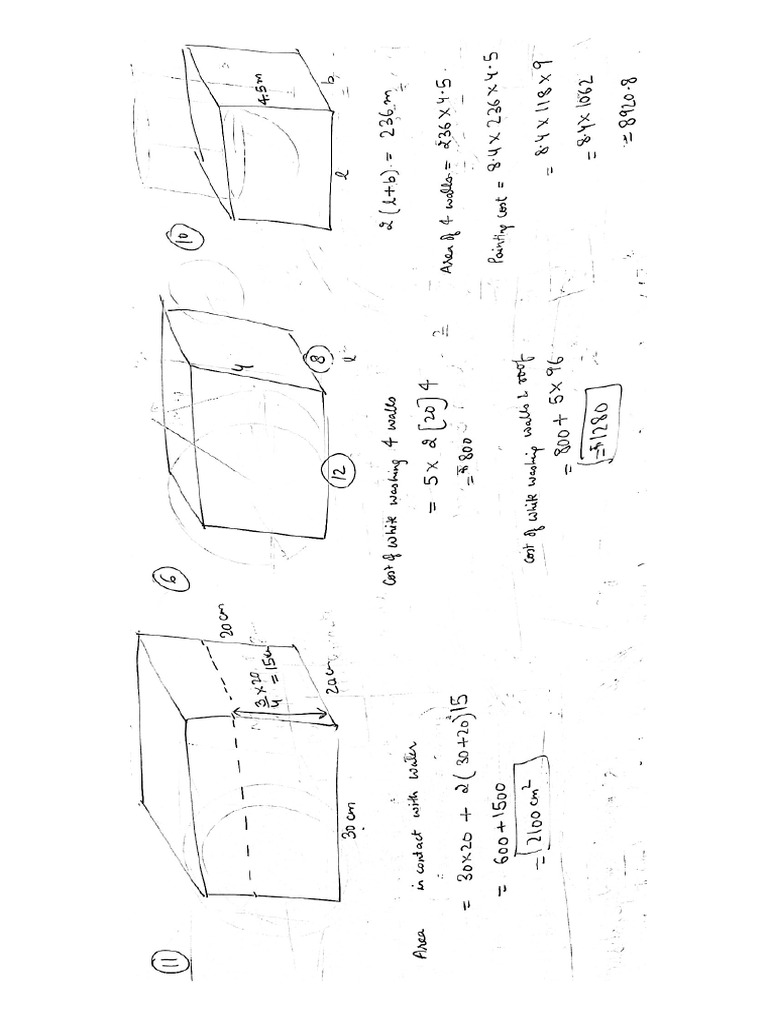 11
20 cm
3/4 × 20 = 15 cm
20 cm
30 cm
Area in contact with water
= 30×20 + 2(30+20)15
= 600 + 1500
= 2100 cm²
6
4
8
l
12
Cost of white washing 4 walls
= 5 × 2 [20] 4
= ₹800
=
Cost of white washing walls & roof
= 800 + 5 × 96
= ₹1280
10
4.5 m
b
l
2(l+b) = 236 m
Area of 4 walls = 236 × 4.5
Painting cost = 8.4 × 236 × 4.5
= 8.4 × 118 × 9
= 8.4 × 1062
= 8920.8